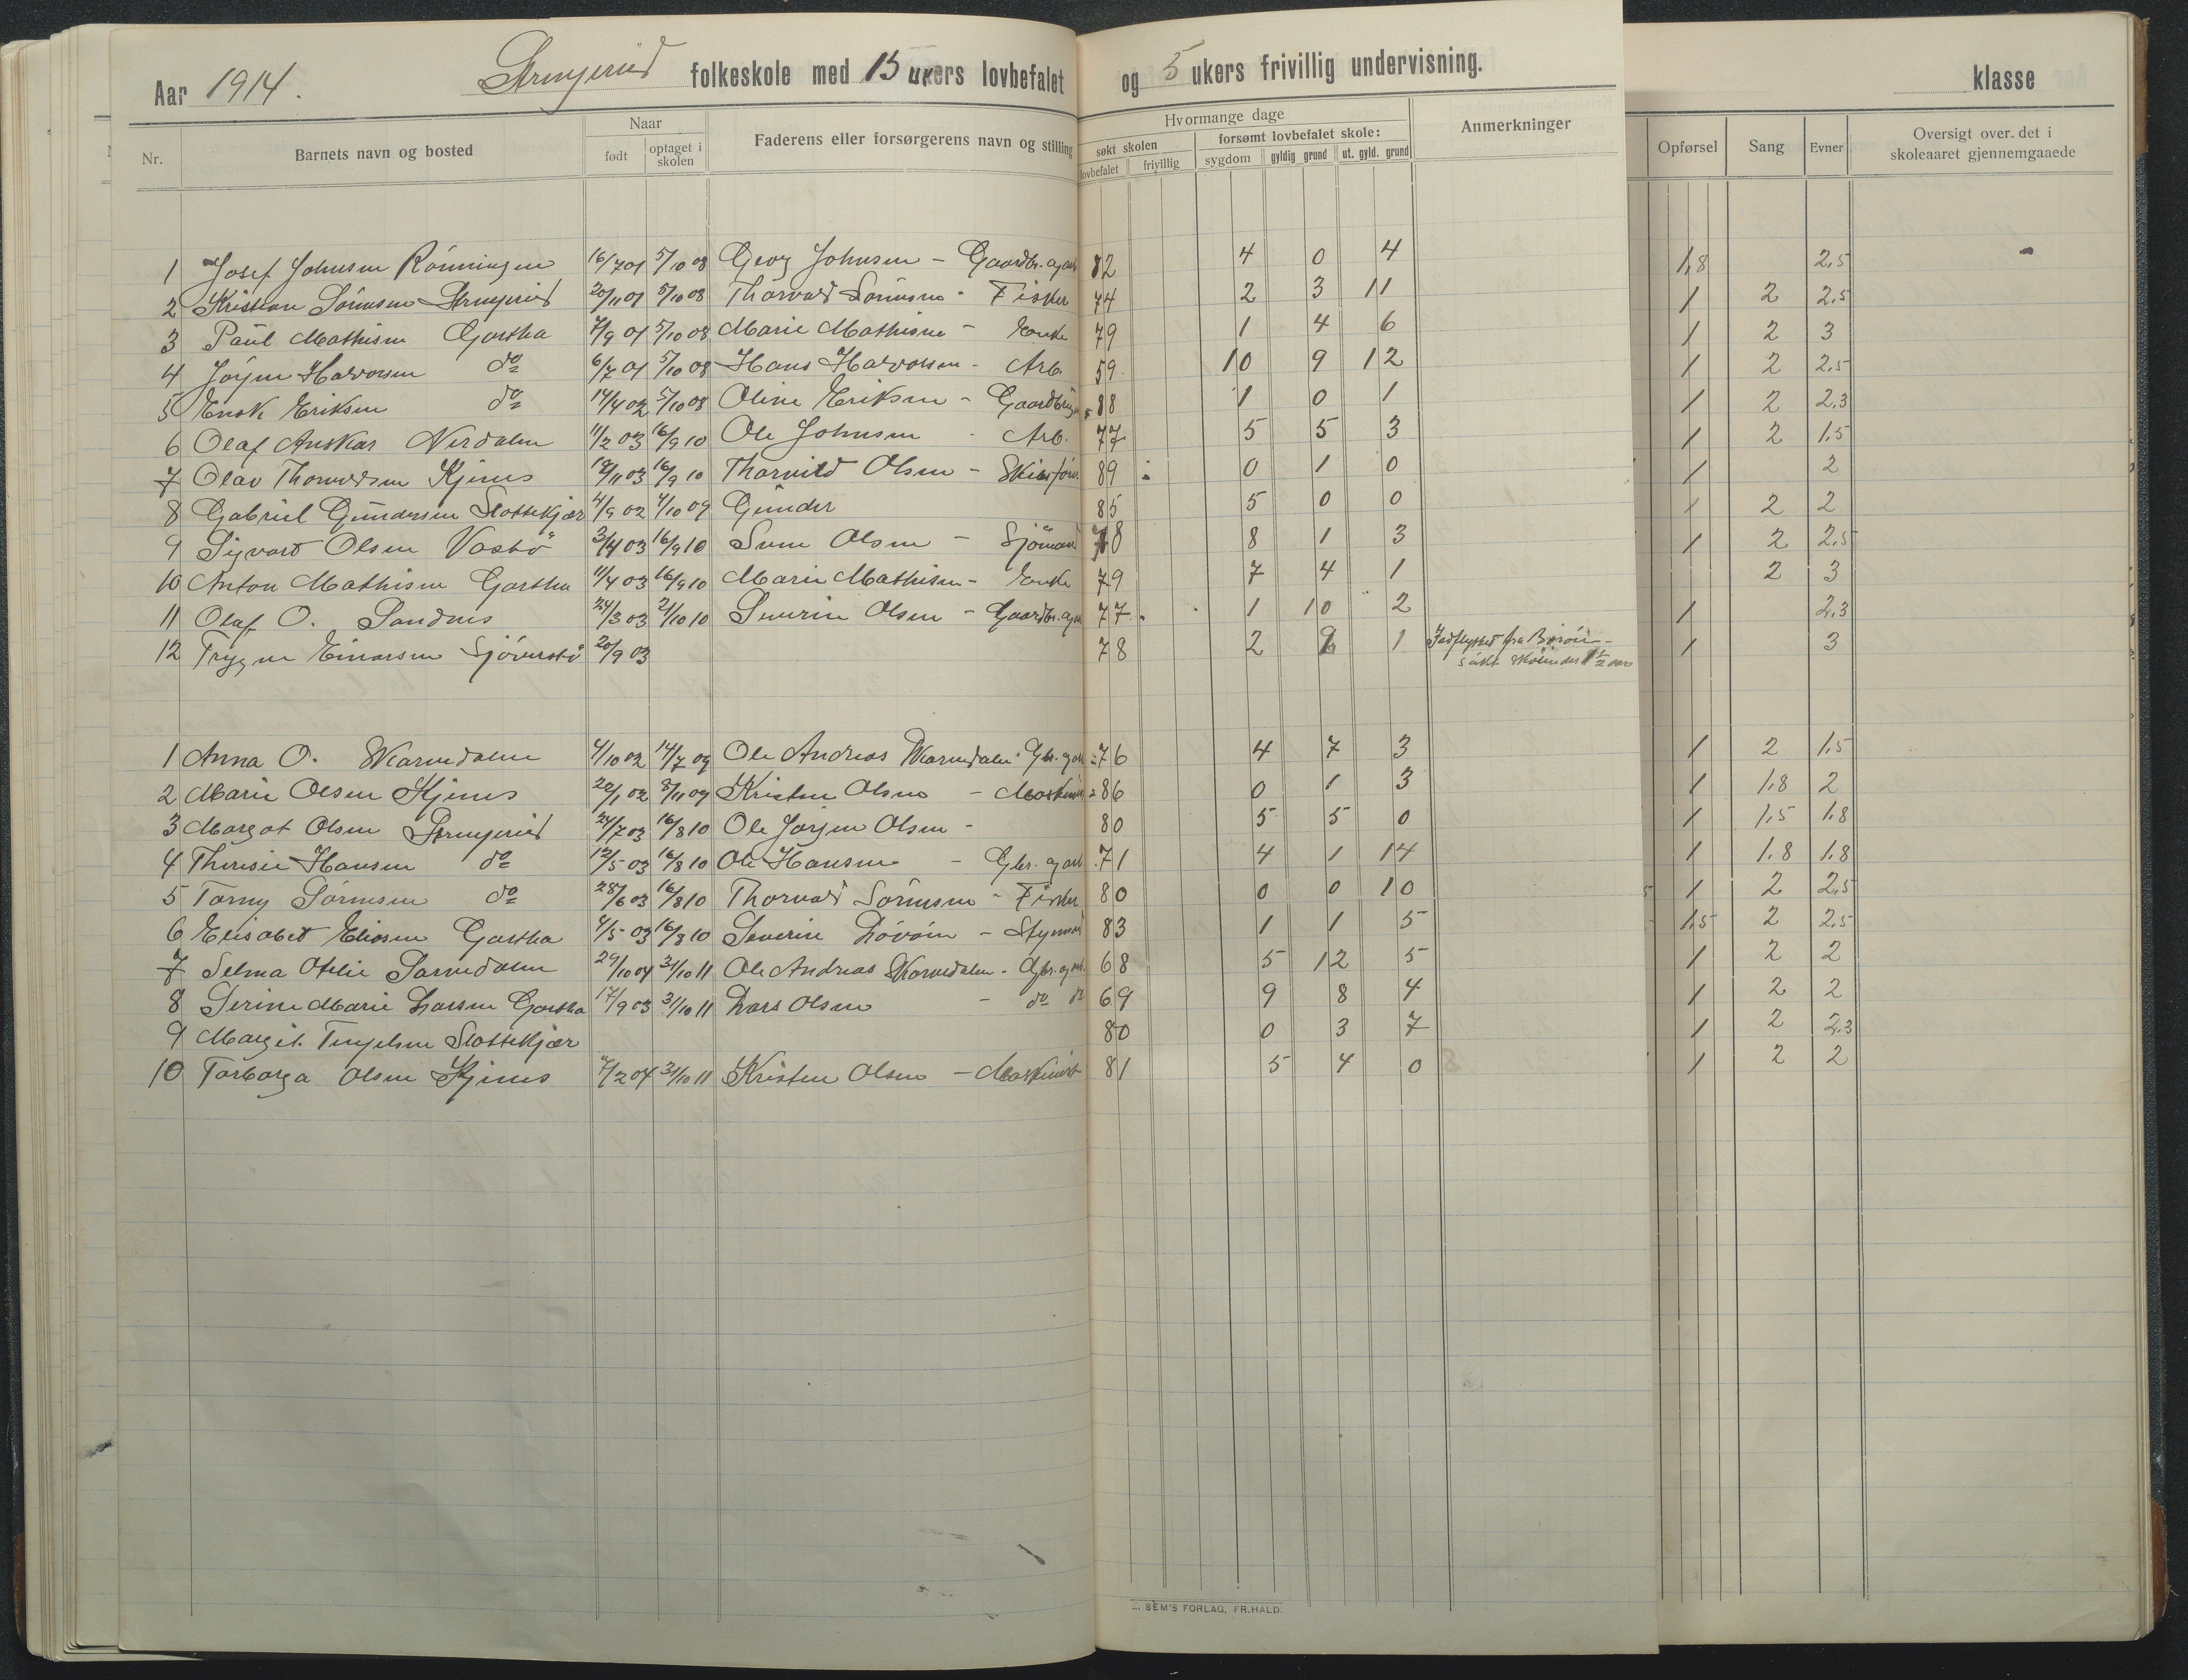 Aar 1914. folkeskole med 15 ukers lovbefalet og 5 ukers frivillig undervisning. klasse
Nr. Barnets navn og bosted Naar født optaget i skolen Faderens eller forsørgerens navn og stilling Hvormange dage søkt skolen lovbefalet frivillig forsømt lovbefalet skole: sygdom gyldig grund ut. gyld. grund Anmerkninger Opførsel Sang Evner Oversigt over det i skoleaaret gjennemgaaede
1 Josef Johnsen Rönningen 16/7 01 5/10 08 Georg Johnsen - Gaardbr. og arb 82 4 0 4 1,8 2,5
2 Kristian Sörensen 20/11 01 5/10 08 Thorvald Sörensen - Fisker 74 2 3 11 1 2 2,5
3 Paul Mathisen Gartha 7/9 01 5/10 08 Marie Mathisen - Enke 79 1 4 6 1 2 3
4 Jörgen Halvorsen do 6/7 01 5/10 08 Hans Halvorsen - Arb. 59 10 9 12 1 2 2,5
5 Eriksen do 14/4 02 5/10 08 Oline Eriksen - 88 1 0 1 1 2 2,3
6 Olaf Anskar Nerdalen 11/2 03 16/9 10 Ole Johnsen - Arb. 77 5 5 3 1 2 1,5
7 Olav Kjenes /11 03 16/9 10 Olsen - 89 0 1 0 1 2
8 Gabriel Gundersen Slottekjær 4/9 02 4/10 09 Gunder 85 5 0 0 1 2 2
9 Sigvard Olsen Vasbö 3/4 03 16/9 10 Olsen - Sjömand 78 8 1 3 1 2 2,5
10 Anton Mathisen Gartha 11/4 03 16/9 10 Marie Mathisen - Enke 79 7 4 1 2 3
11 Olaf O. Sandnes 24/3 03 21/10 10 Severin Olsen - Gaardbr. og arb 77 1 10 2 1 2,3
12 Trygve Einarsen Sjöverstö 20/9 03 78 2 1 Indflyttet fra Boröen - 1 3
sökt skolen der 1 1/2 aar
1 Anna O. Skarvedalen 4/10 02 14/7 09 Ole Andreas Skarvedalen Gbr. og arb 76 4 7 3 1 2 1,5
2 Marie Olsen Kjenes 20/1 02 8/11 09 Kristen Olsen - Maskinist 86 0 1 3 1 1,8 2
3 Margot Olsen 24/7 03 16/8 10 Ole Jörgen Olsen - 80 5 5 0 1 1,5 1,8
4 Theresie Hansen do 12/5 03 16/8 10 Ole Hansen - Gbr. og arb 71 4 1 14 1 1,8 1,8
5 Torny Sörensen do 28/6 03 16/8 10 Thorvald Sörensen - Fisker 80 0 0 10 1 2 2,5
6 Elisabet Eliasen Gartha 4/5 03 16/8 10 Severin - Styrmand 83 1 1 5 1,5 2 2,5
7 Selma Otelie 29/10 04 31/10 11 Ole Andreas Skarvedalen - Gbr. og arb. 68 5 12 5 1 2 2
8 Serine Marie Larsen Gartha 17/9 03 31/10 11 Lars Olsen - do do 69 9 8 4 1 2 2
9 Margit Slottekjær 80 0 3 7 1 2 2,3
10 Torborga Olsen Kjenes 7/2 04 31/10 11 Kristen Olsen - Maskinist 81 5 4 0 1 2 2
SEM'S FORLAG, FR.HALD.